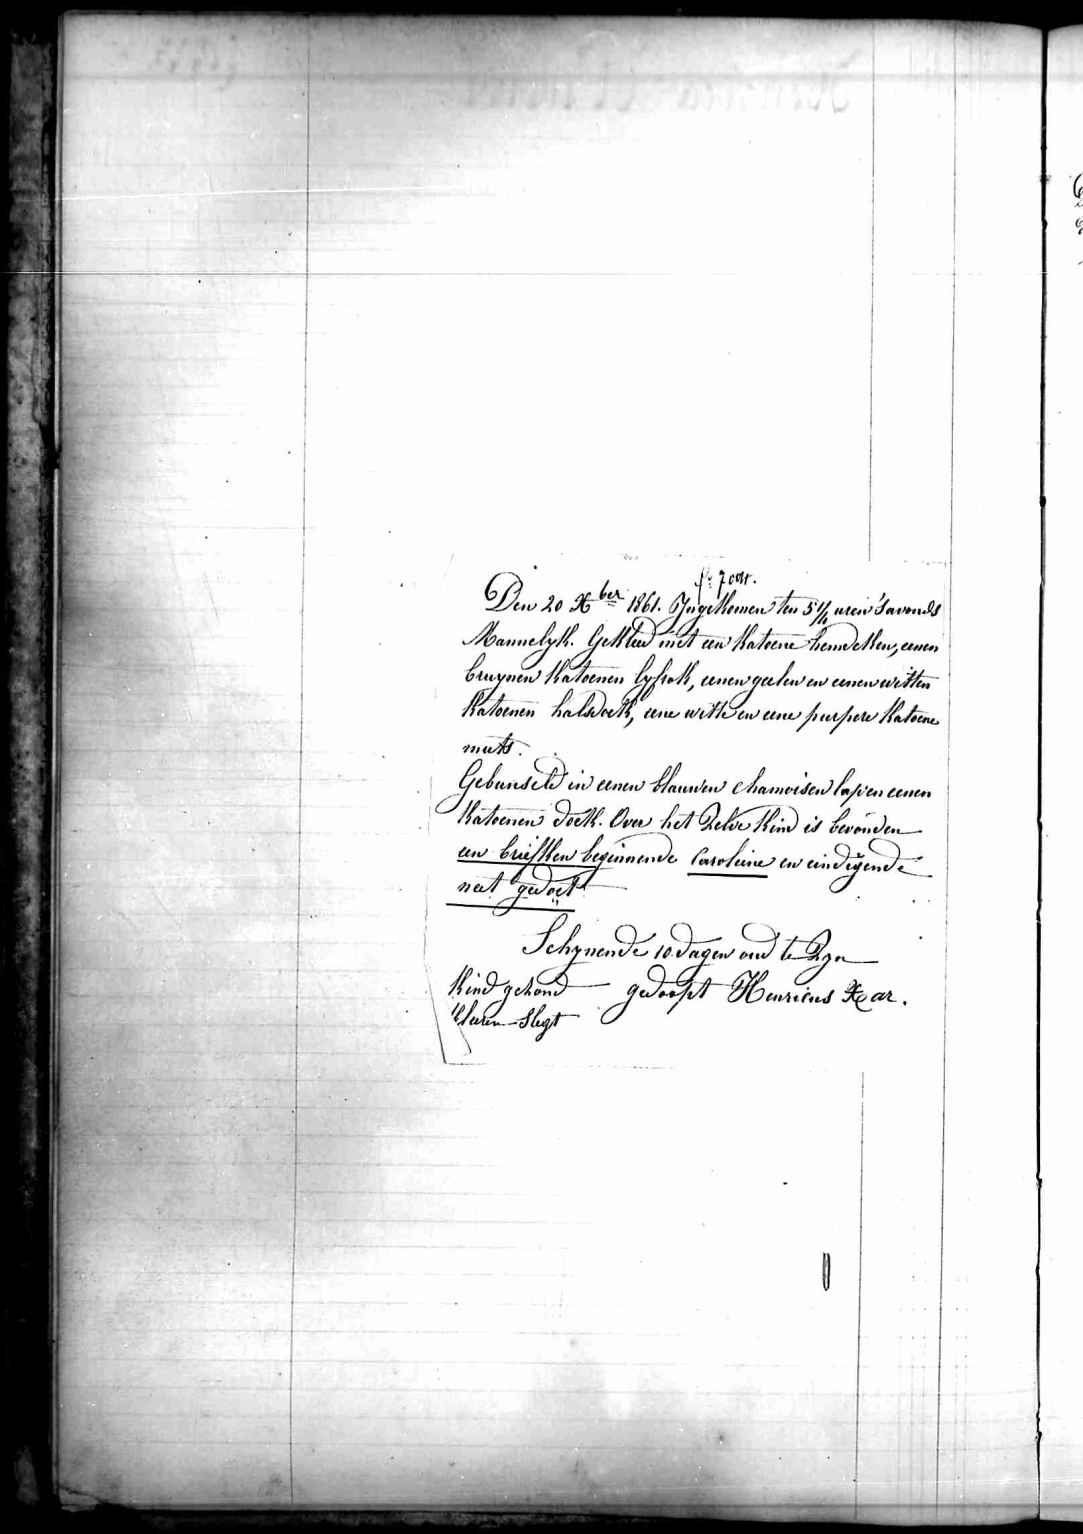 Den 20 Xber 1861. Ingekomen ten 5 1/4 uren 's avonds
Mannelyk. Gekleed met een katoene hemdeken, eenen
bruynen katoenen lyfrok, eenen geelen en eenen witten
katoenen halsdoek, eene witte en eene purpere katoene
muts.
Gebunseld in eenen blauwen chamoisen lap en eenen
katoenen doek. Over het zelve kind is bevonden
een briefken beginnende Caroleine en eindigende
neet gedoet
Schynende 10 dagen oud te zyn
Kind gezond gedoopt Henricus
kleeren slegt